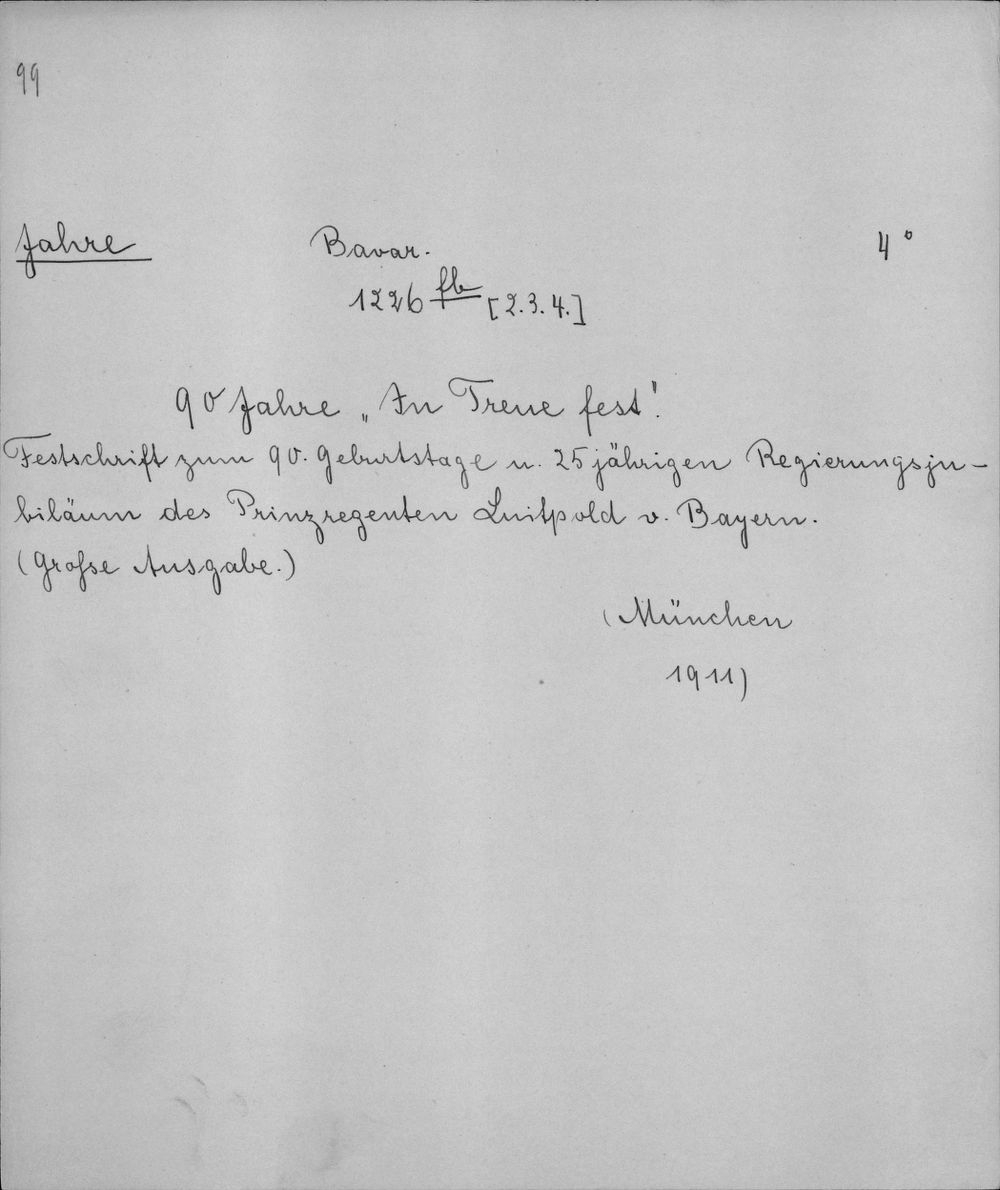 99
Jahre Bavar. 4°
1226 fb [2.3.4.]
90 Jahre „In Treue fest".
Festschrift zum 90. Geburtstage u. 25jährigen Regierungsju-
biläum des Prinzregenten Luitpold v. Bayern.
(Grofse Ausgabe.)
(München
1911)